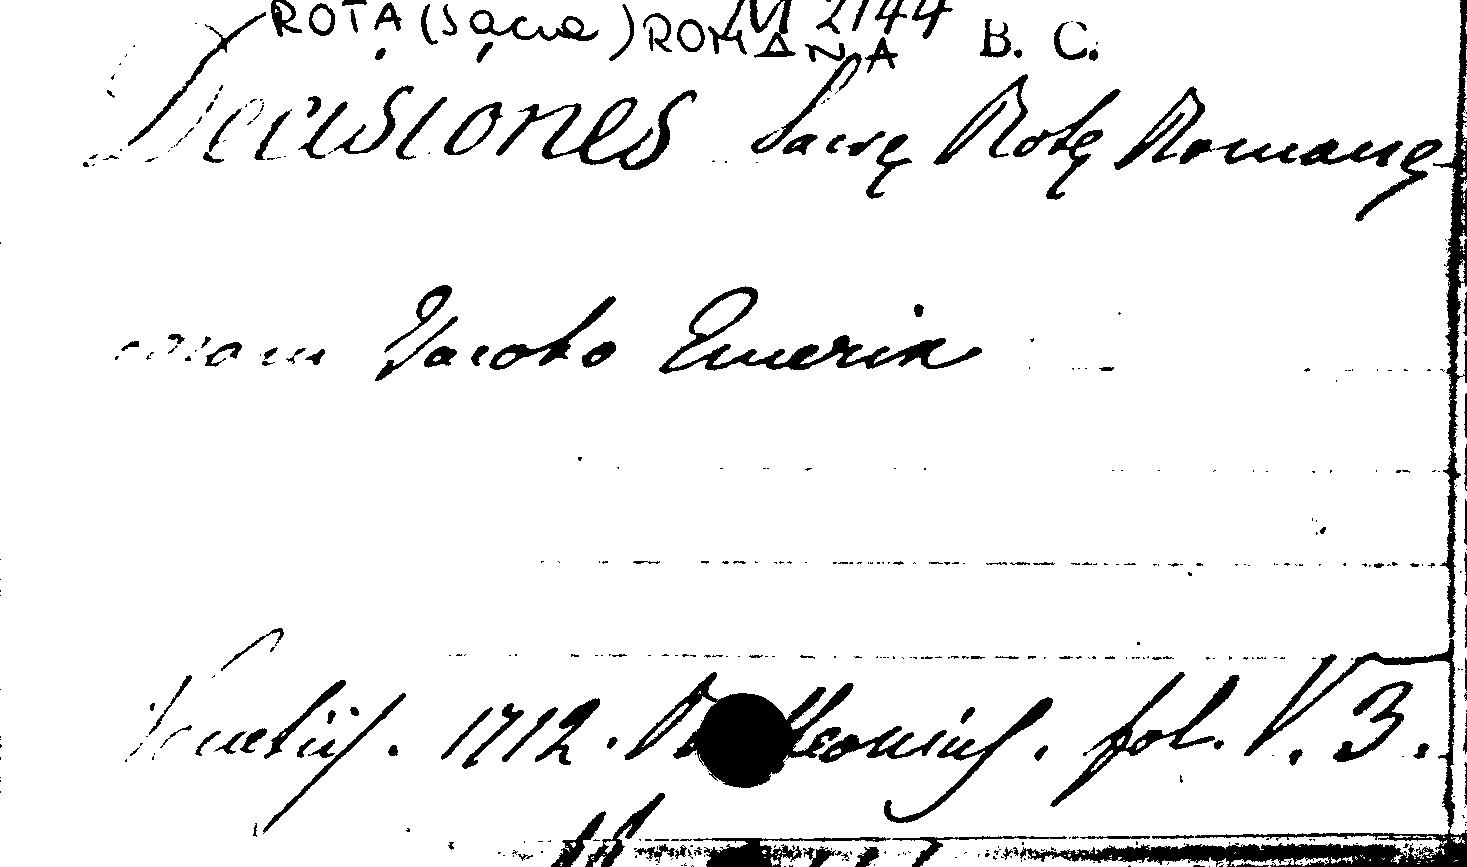 ROTA (Sacra) ROMANA M 2144 B. C.
Decisiones Sacrę Rotę Romanę
coram Jacobo Emerix
Venetiis. 1712. fol. V. 3.